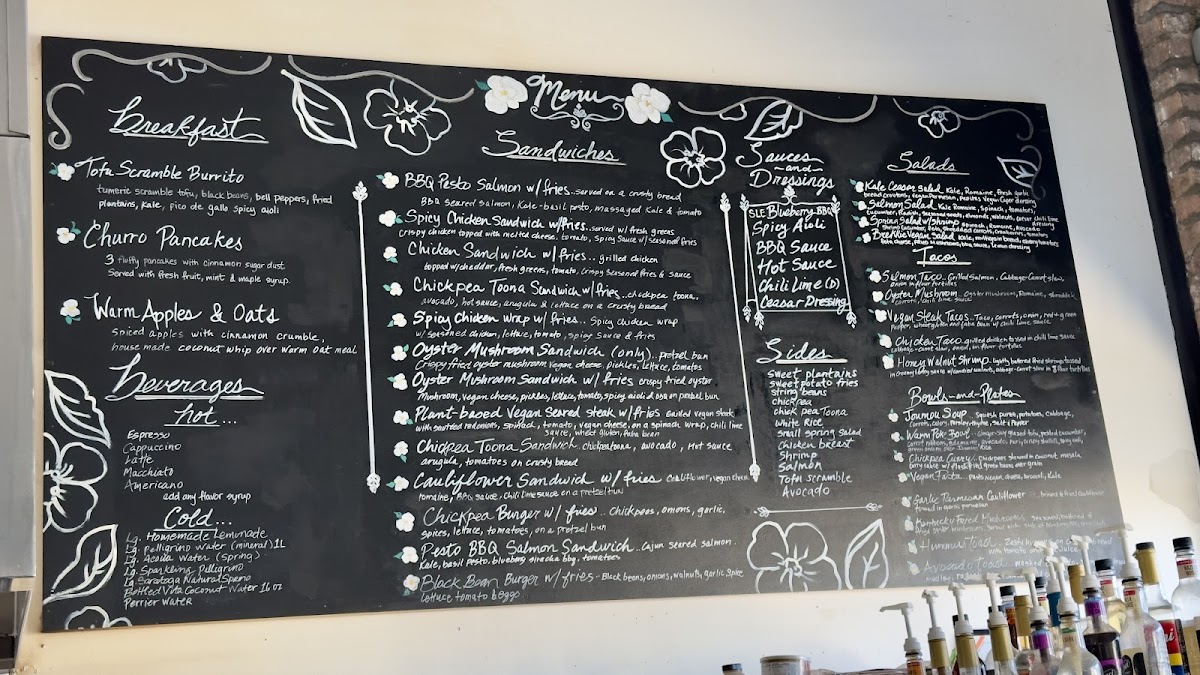 Menu
Breakfast
Tofu Scramble Burrito
tumeric scramble tofu, black beans, bell peppers, fried
plantains, kale, pico de gallo spicy aioli
Churro Pancakes
3 fluffy pancakes with cinnamon sugar dust
Served with fresh fruit, mint & maple syrup.
Warm Apples & Oats
Spiced apples with cinnamon crumble,
house made coconut whip over warm oat meal
beverages
hot...
Espresso
Cappuccino
Latte
Macchiato
Americano
add any flavor syrup
Cold...
Lg. Homemade Lemonade
Lg. Pelligrino Water (mineral) 1L
Lg. Water (Spring)
Lg. Sparkling Pelligrino
Lg Saratoga Natural
Bottled Vita Coconut Water 16 oz
Perrier Water
Sandwiches
BBQ Pesto Salmon w/fries..served on a crusty bread
BBQ seared salmon, Kale-basil pesto, massaged Kale & tomato
Spicy Chicken Sandwich w/fries..served w/ fresh greens
crispy chicken topped with melted cheese, tomato, spicy sauce w/seasoned fries
Chicken Sandwich w/ fries.. grilled chicken
topped w/cheddar, fresh greens, tomato, crispy seasoned fries & sauce
Chickpea Toona Sandwich w/fries..chickpea toona,
avocado, hot sauce, arugula & lettuce on a crusty bread
Spicy Chicken wrap w/ fries.. Spicy chicken wrap
w/ seasoned chicken, lettuce, tomato, spicy Sauce & fries
Oyster Mushroom Sandwich (only)..pretzel bun
Crispy fried oyster mushroom vegan cheese, pickles, lettuce, tomatoes
Oyster Mushroom Sandwich w/ fries crispy fried oyster
mushroom, vegan cheese, pickles, lettuce, tomato, spicy aioli & on pretzel bun
Plant-based Vegan Seared steak w/fries seared vegan steak
with sauteed red onions, spinach, tomato, vegan cheese, on a spinach wrap, chili lime
sauce, wheat gluten, faba bean
Chickpea Toona Sandwich. chickentoona, avocado, Hot sauce
arugula, tomatoes on crusty bread
Cauliflower Sandwich w/ fries cauliflower, vegan cheese
romaine, BBQ sauce, chili lime sauce on a pretzel bun
Chickpea Burger w/ fries.. Chickpeas, onions, garlic,
spices, lettuce, tomatoes, on a pretzel bun
Pesto BBQ Salmon Sandwich..cajun seared salmon.
Kale, basil pesto, blueberry bbq, tomatoes
Black Bean Burger w/fries - Black beans, onions, walnuts, garlic, spice
lettuce tomato
Sauces
and
Dressings
SLE Blueberry BBQ
Spicy Aioli
BBQ Sauce
Hot Sauce
Chili Lime (D)
Ceasar Dressing
Sides
sweet plantains
sweet potato fries
string beans
chickpea
chick pea Toona
White Rice
small spring salad
Chicken breast
Shrimp
Salmon
Tofu scramble
Avocado
Salads
Kale Ceasar Salad, Kale, Romaine, fresh garlic
Salmon Salad, Kale, Romaine, spinach, tomatoes,
Spring Salad w/Shrimp
Vegan Salad, Kale
Tacos
Salmon Taco. Grilled salmon, cabbage-carrot slaw,
onion in flour tortillas
Oyster Mushroom oyster mushroom, Romaine,
carrots, chili lime sauce
Vegan Steak Tacos.. Taco, carrots, onion, red-green
Chicken Taco, grilled chicken tossed in chili lime sauce
Honey Walnut Shrimp. lightly battered fried shrimp tossed
Bowls-and-Plates
Joumou Soup.. squash puree, potatoes, cabbage,
carrots, celery, parsley, thyme, salt & pepper
Warm Poke Bowl
Chickpea Curry.. chickpeas stewed in coconut masala
Vegan Pasta
Garlic Parmesan Cauliflower
Kentucky Fried Mushrooms
Hummus Toast
Avocado Toast